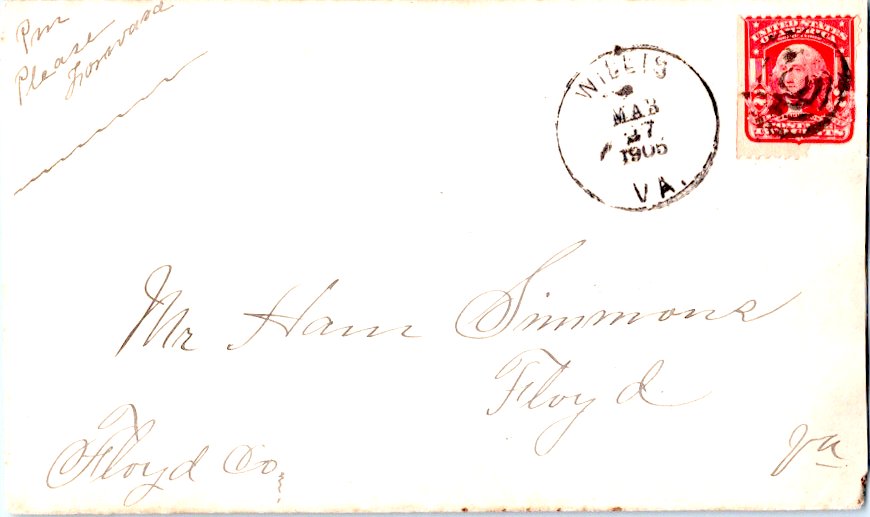 Pm
Please
forward
WILLIS
MAR
27
1905
VA.
UNITED STATES
OF AMERICA
Mr Ham Simmons
Floyd
Floyd Co.
Va